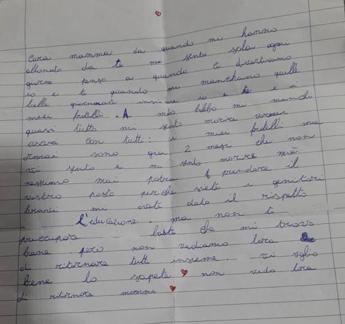 Cara mamma da quando mi hanno
allonata da te mi sento sola ogni
giorno penso a quando ci divertivamo
io e te quando mi mancano quelle
belle giornate insieme io e te e i
miei fratelli. A mio babbo mi manchi
quasi tutti mi sento morire
con tutti: i miei fratelli ma
ormai sono qua 2 mesi che non
vi sento e mi sento morire mà
nessuno mai potrà prendere il
vostro posto perche siete i genitori
bravi mi avete dato il rispetto
l'educazione ma non ti
preccupare baste che mi trovo
bene però non vediamo lora
di ritornare tutti insieme. vi voglio
bene lo sapete non vedo lora
di ritornare mamma